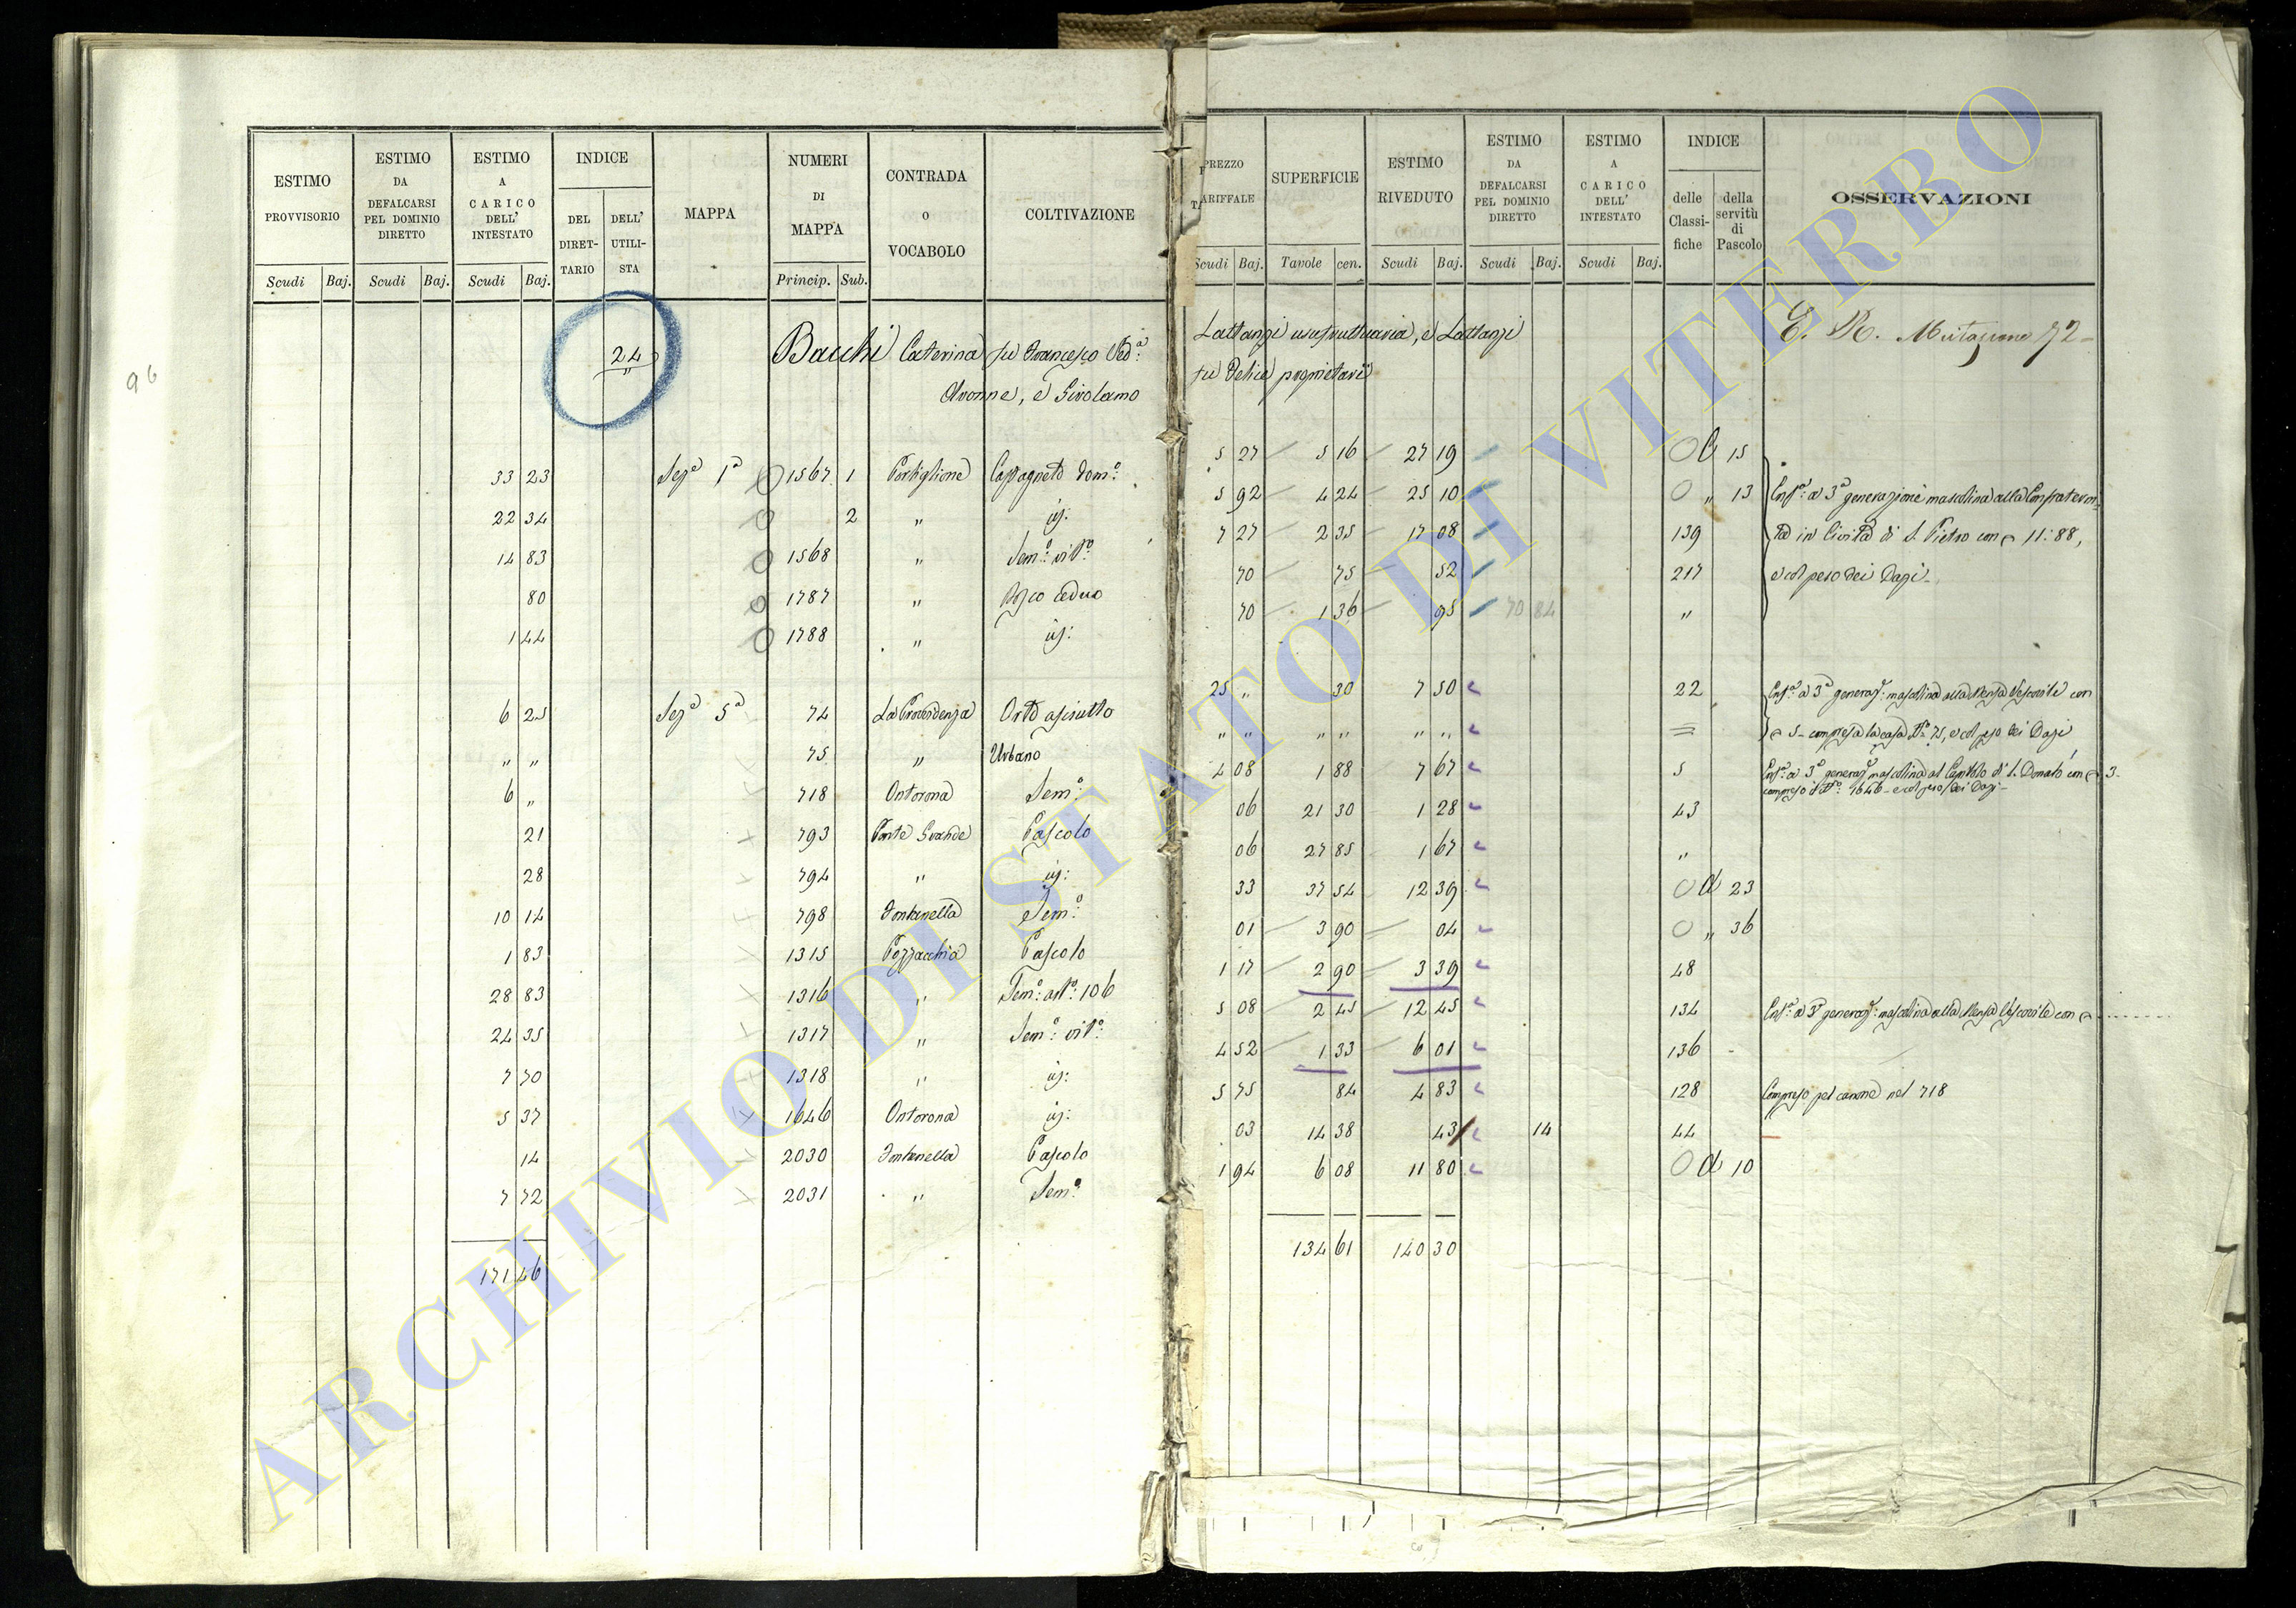 ESTIMO PROVVISORIO | ESTIMO DA DEFALCARSI PEL DOMINIO DIRETTO | ESTIMO A CARICO DELL' INTESTATO | INDICE DEL DIRETTARIO | DELL' UTILISTA | MAPPA | NUMERI DI MAPPA | CONTRADA O VOCABOLO | COLTIVAZIONE
Scudi Baj. | Scudi Baj. | Scudi Baj. | Princip. Sub.
96
24 Bacchi Caterina fu Francesco Ved.ª
Avonne, e Girolamo
33 23 Sezª 1ª 1567 1 Portiglione Castagneto Domº:
22 34 2 " id:
14 83 1568 " Semº: vitº:
80 1787 " Bosco ceduo
1 44 1788 " id:
6 25 Sezª 5ª 74 La Provvidenza Orto asciutto
" " 75 " Urbano
6 " 718 Ontorona Semº:
21 793 Ponte Grande Pascolo
28 794 " id:
10 14 798 Fontanella Semº:
1 83 1315 Pozzacchia Pascolo
28 83 1316 " Semº: artº: 106
24 35 1317 " Semº: vitº:
7 70 1318 " id:
5 37 1646 Ontorona id:
14 2030 Fontanella Pascolo
7 72 2031 " Semº:
171 46
PREZZO TARIFFALE | SUPERFICIE | ESTIMO RIVEDUTO | ESTIMO DA DEFALCARSI PEL DOMINIO DIRETTO | ESTIMO A CARICO DELL' INTESTATO | INDICE delle Classifiche | della servitù di Pascolo | OSSERVAZIONI
Scudi Baj. | Tavole cen. | Scudi Baj. | Scudi Baj. | Scudi Baj.
Lattanzi usufruttuaria, e Lattanzi
fu Felice proprietarii
E. R. Mutazione 72
5 27 5 16 27 19 15
5 92 4 24 25 10 " 13 Enfª: a 3ª generazione mascolina alla Confraterni
7 27 2 35 17 08 139 tà in Civita di S. Pietro con 11:88,
70 75 52 217 e col peso dei Dazi
70 1 36 95 70 84 "
25 " 30 7 50 22 Enfª: a 3ª generaz: mascolina alla Mensa Vescovile con
" " " " " " 5 - compresa la casa Nº 75, e col peso dei Dazi
4 08 1 88 7 67 5 Enfª: a 3ª generaz: mascolina al Capitolo di S. Donato con 3-
compreso il Nº: 1646 - e col peso dei Dazi -
06 21 30 1 28 43
06 27 85 1 67 "
33 37 54 12 39 23
01 3 90 04 " 36
1 17 2 90 3 39 48
5 08 2 45 12 45 134 Enfª: a 3ª generaz: mascolina alla Mensa Vescovile con
4 52 1 33 6 01 136
5 75 84 4 83 128 Compreso pel canone nel 718
03 14 38 43 14 44
1 94 6 08 11 80 10
134 61 140 30
ARCHIVIO DI STATO DI VITERBO